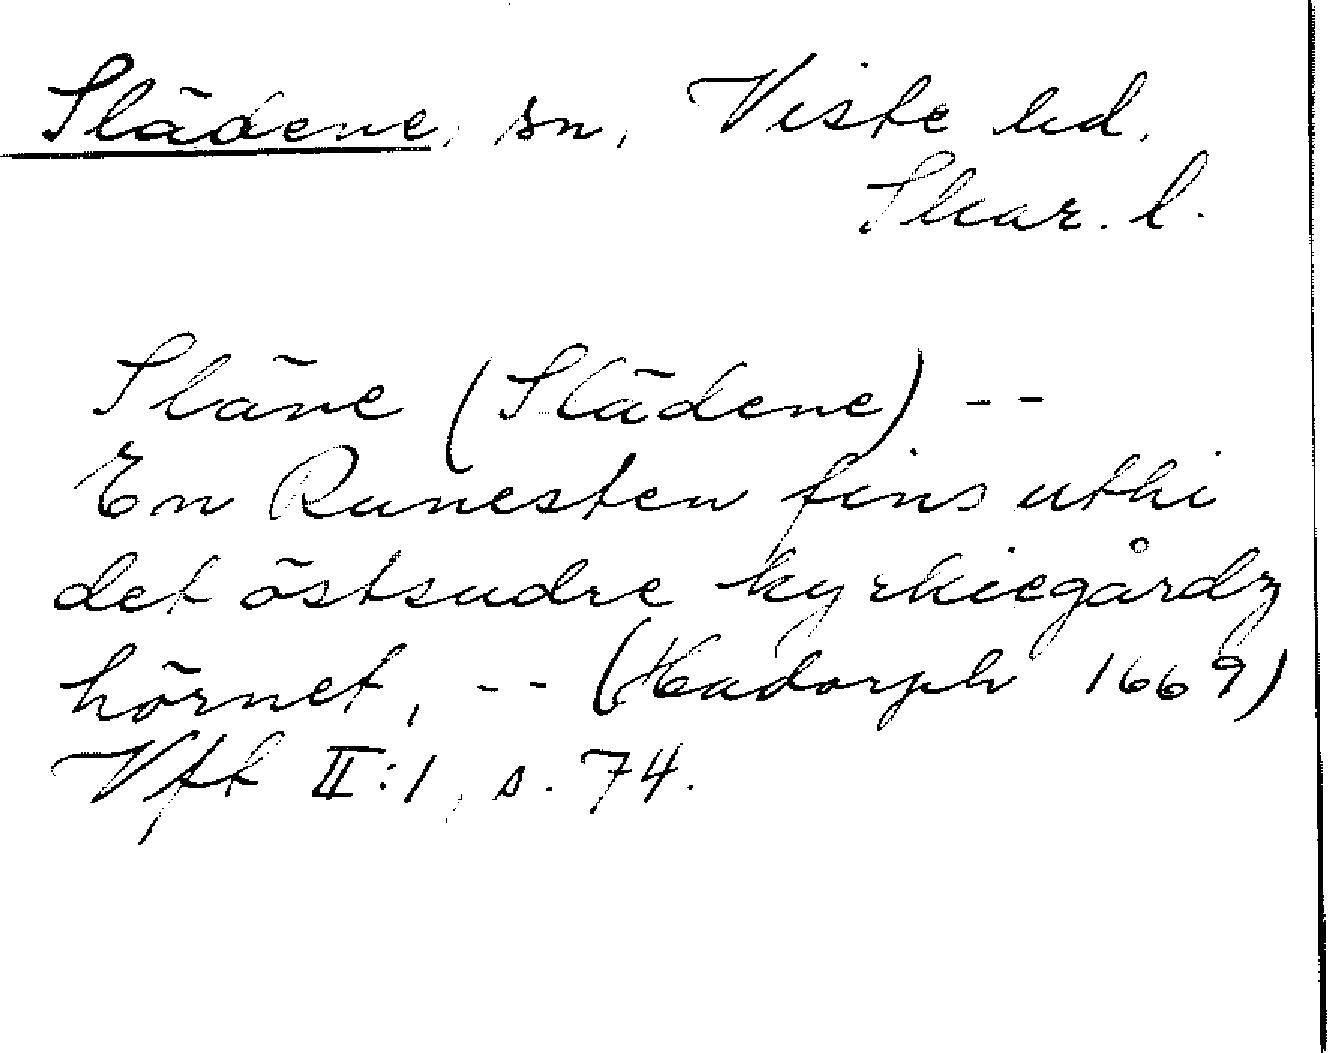 Slädene, sn, Viste hd.
Skar. l.
Släne (Slädene) --
En Runesten fins uthi
det östsudre kyrkiegårdz
hörnet, -- (Hadorph 1669)
Vft II:1, s. 74.